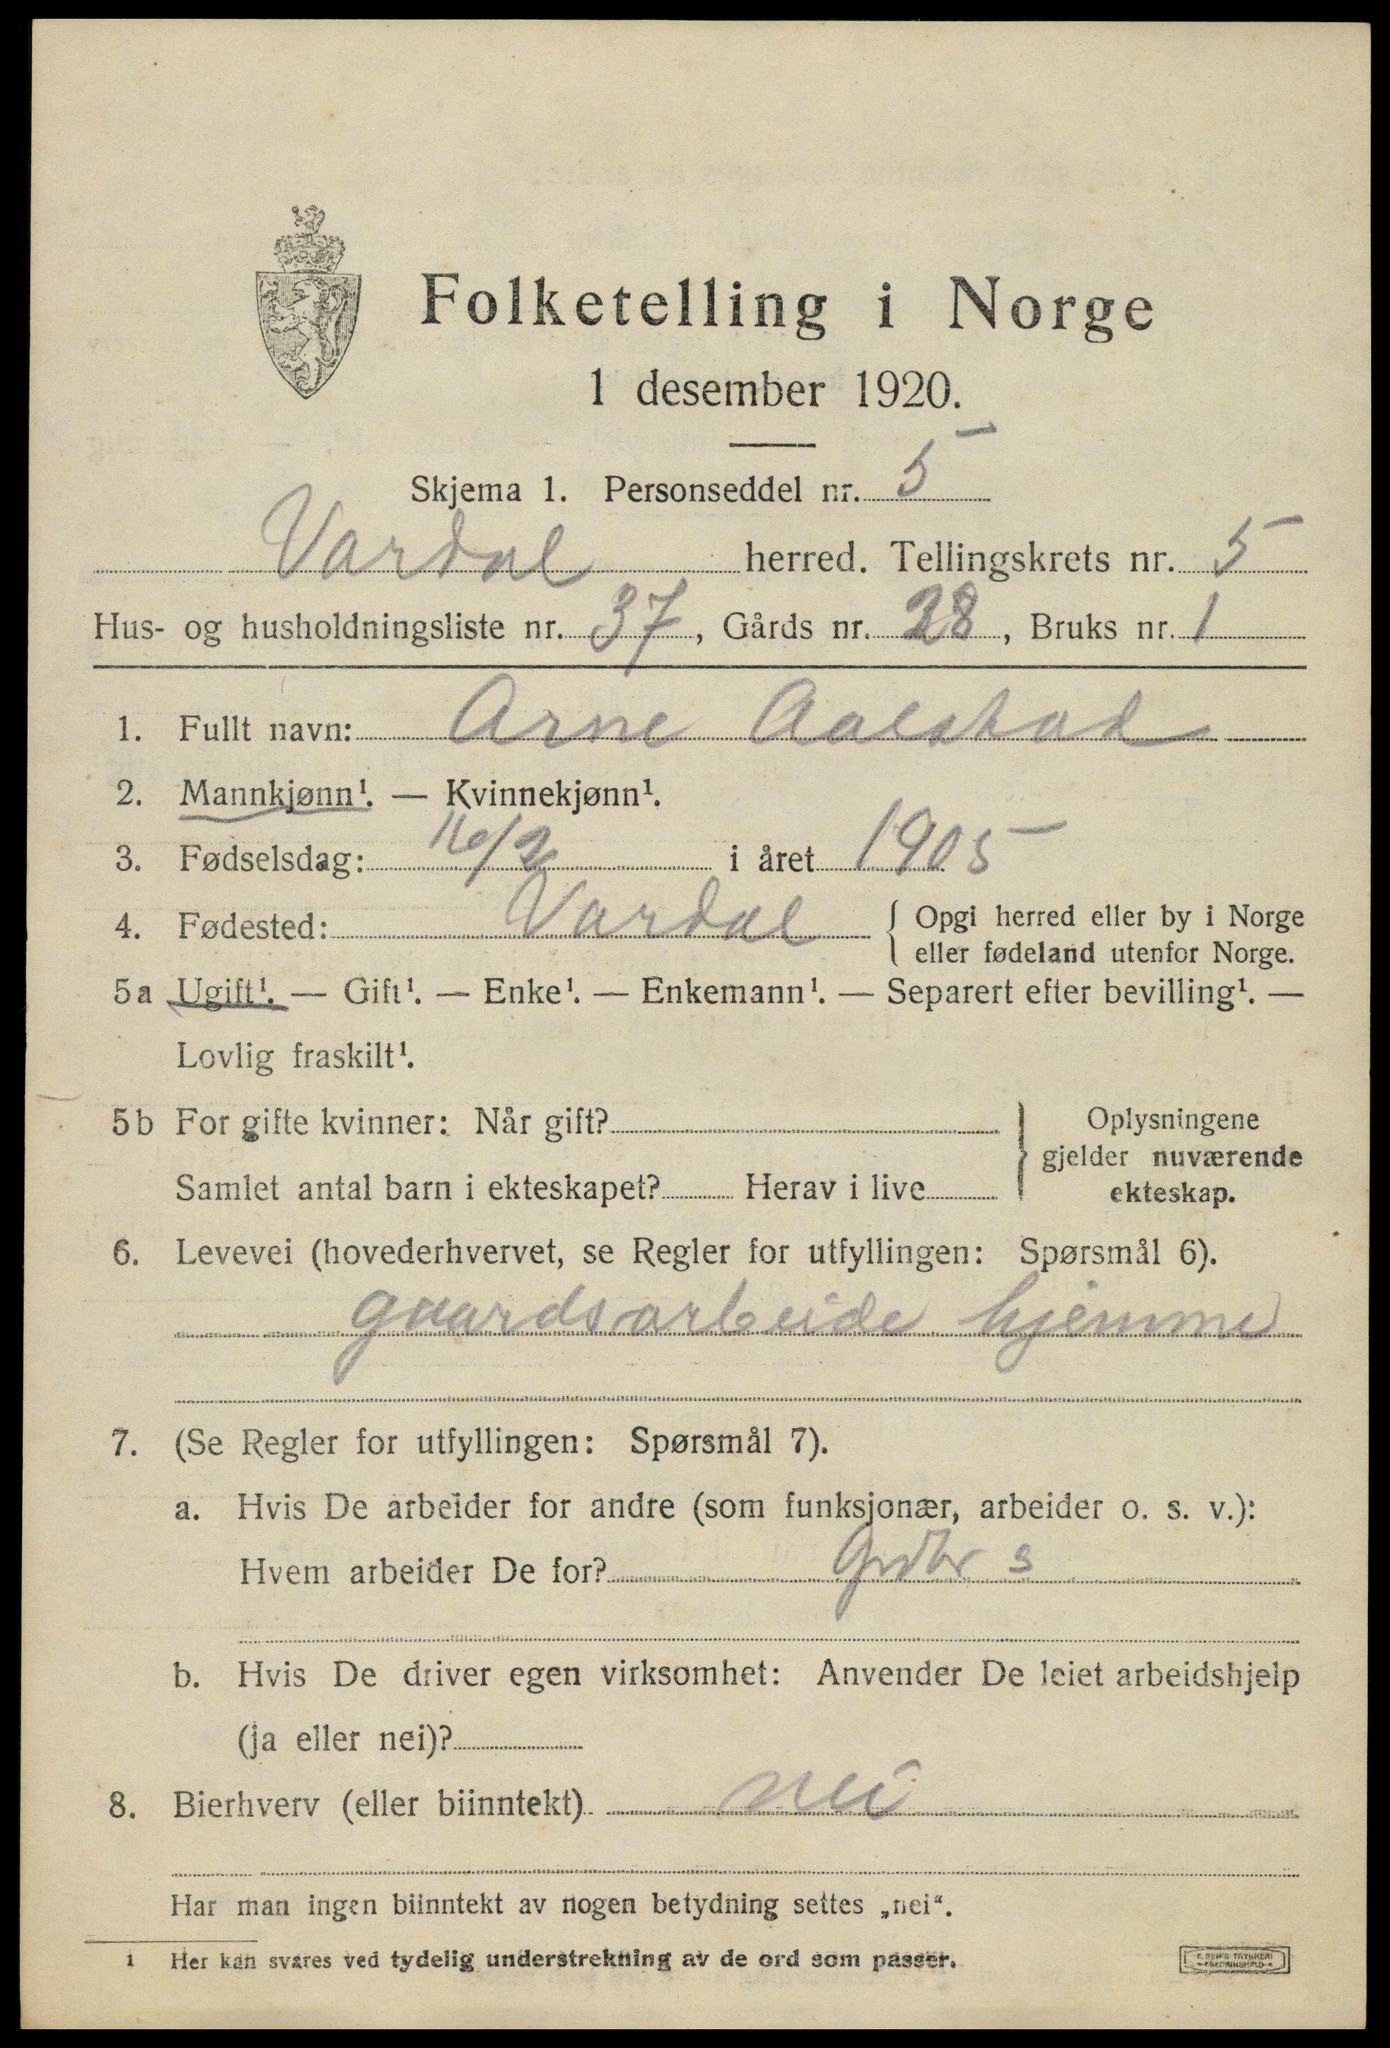 Folketelling i Norge
1 desember 1920.
Skjema 1. Personseddel nr. 5
Vardal herred. Tellingskrets nr. 5
Hus- og husholdningsliste nr. 37, Gårds nr. 28, Bruks nr. 1
1. Fullt navn: Arne Aalstad
2. Mannkjønn¹. — Kvinnekjønn¹.
3. Fødselsdag: 16/2 i året 1905
4. Fødested: Vardal { Opgi herred eller by i Norge
eller fødeland utenfor Norge.
5a Ugift¹. — Gift¹. — Enke¹. — Enkemann¹. — Separert efter bevilling¹. —
Lovlig fraskilt¹.
5b For gifte kvinner: Når gift? } Oplysningene
gjelder nuværende
Samlet antal barn i ekteskapet? Herav i live
ekteskap.
6. Levevei (hovederhvervet, se Regler for utfyllingen: Spørsmål 6).
gaardsarbeide hjemme
7. (Se Regler for utfyllingen: Spørsmål 7).
a. Hvis De arbeider for andre (som funksjonær, arbeider o. s. v.):
Hvem arbeider De for? Grdbr s
b. Hvis De driver egen virksomhet: Anvender De leiet arbeidshjelp
(ja eller nei)?
8. Bierhverv (eller biinntekt) nei
Har man ingen biinntekt av nogen betydning settes „nei“.
1 Her kan svares ved tydelig understrekning av de ord som passer.